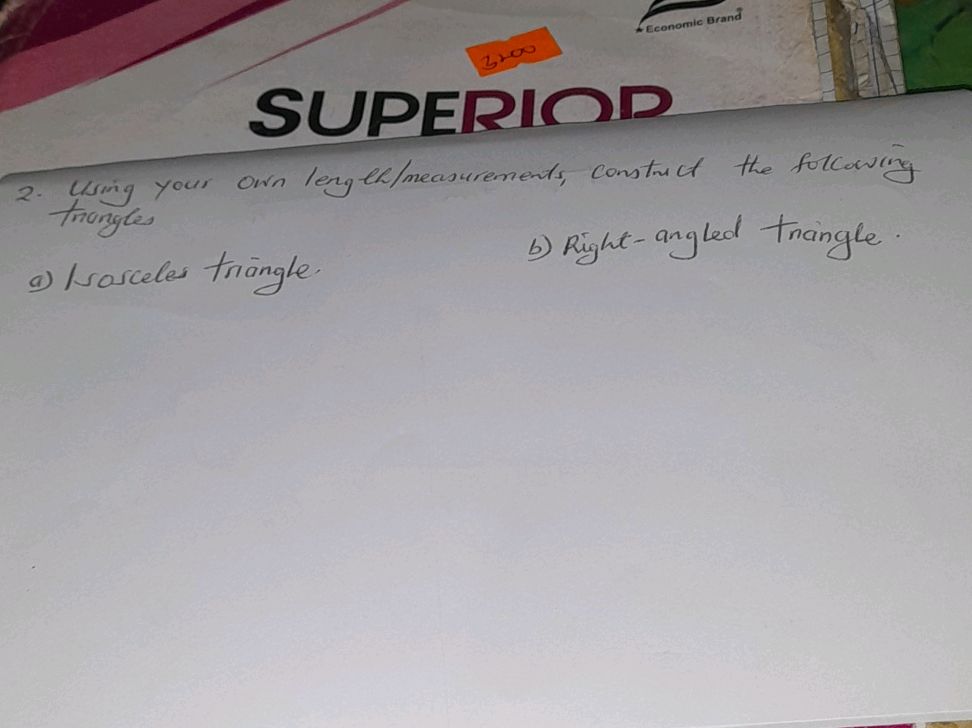 ★ Economic Brand®
3200
SUPERIOR
2. Using your own length/measurements, construct the following
triangles
a) Isosceles triangle.
b) Right-angled triangle.